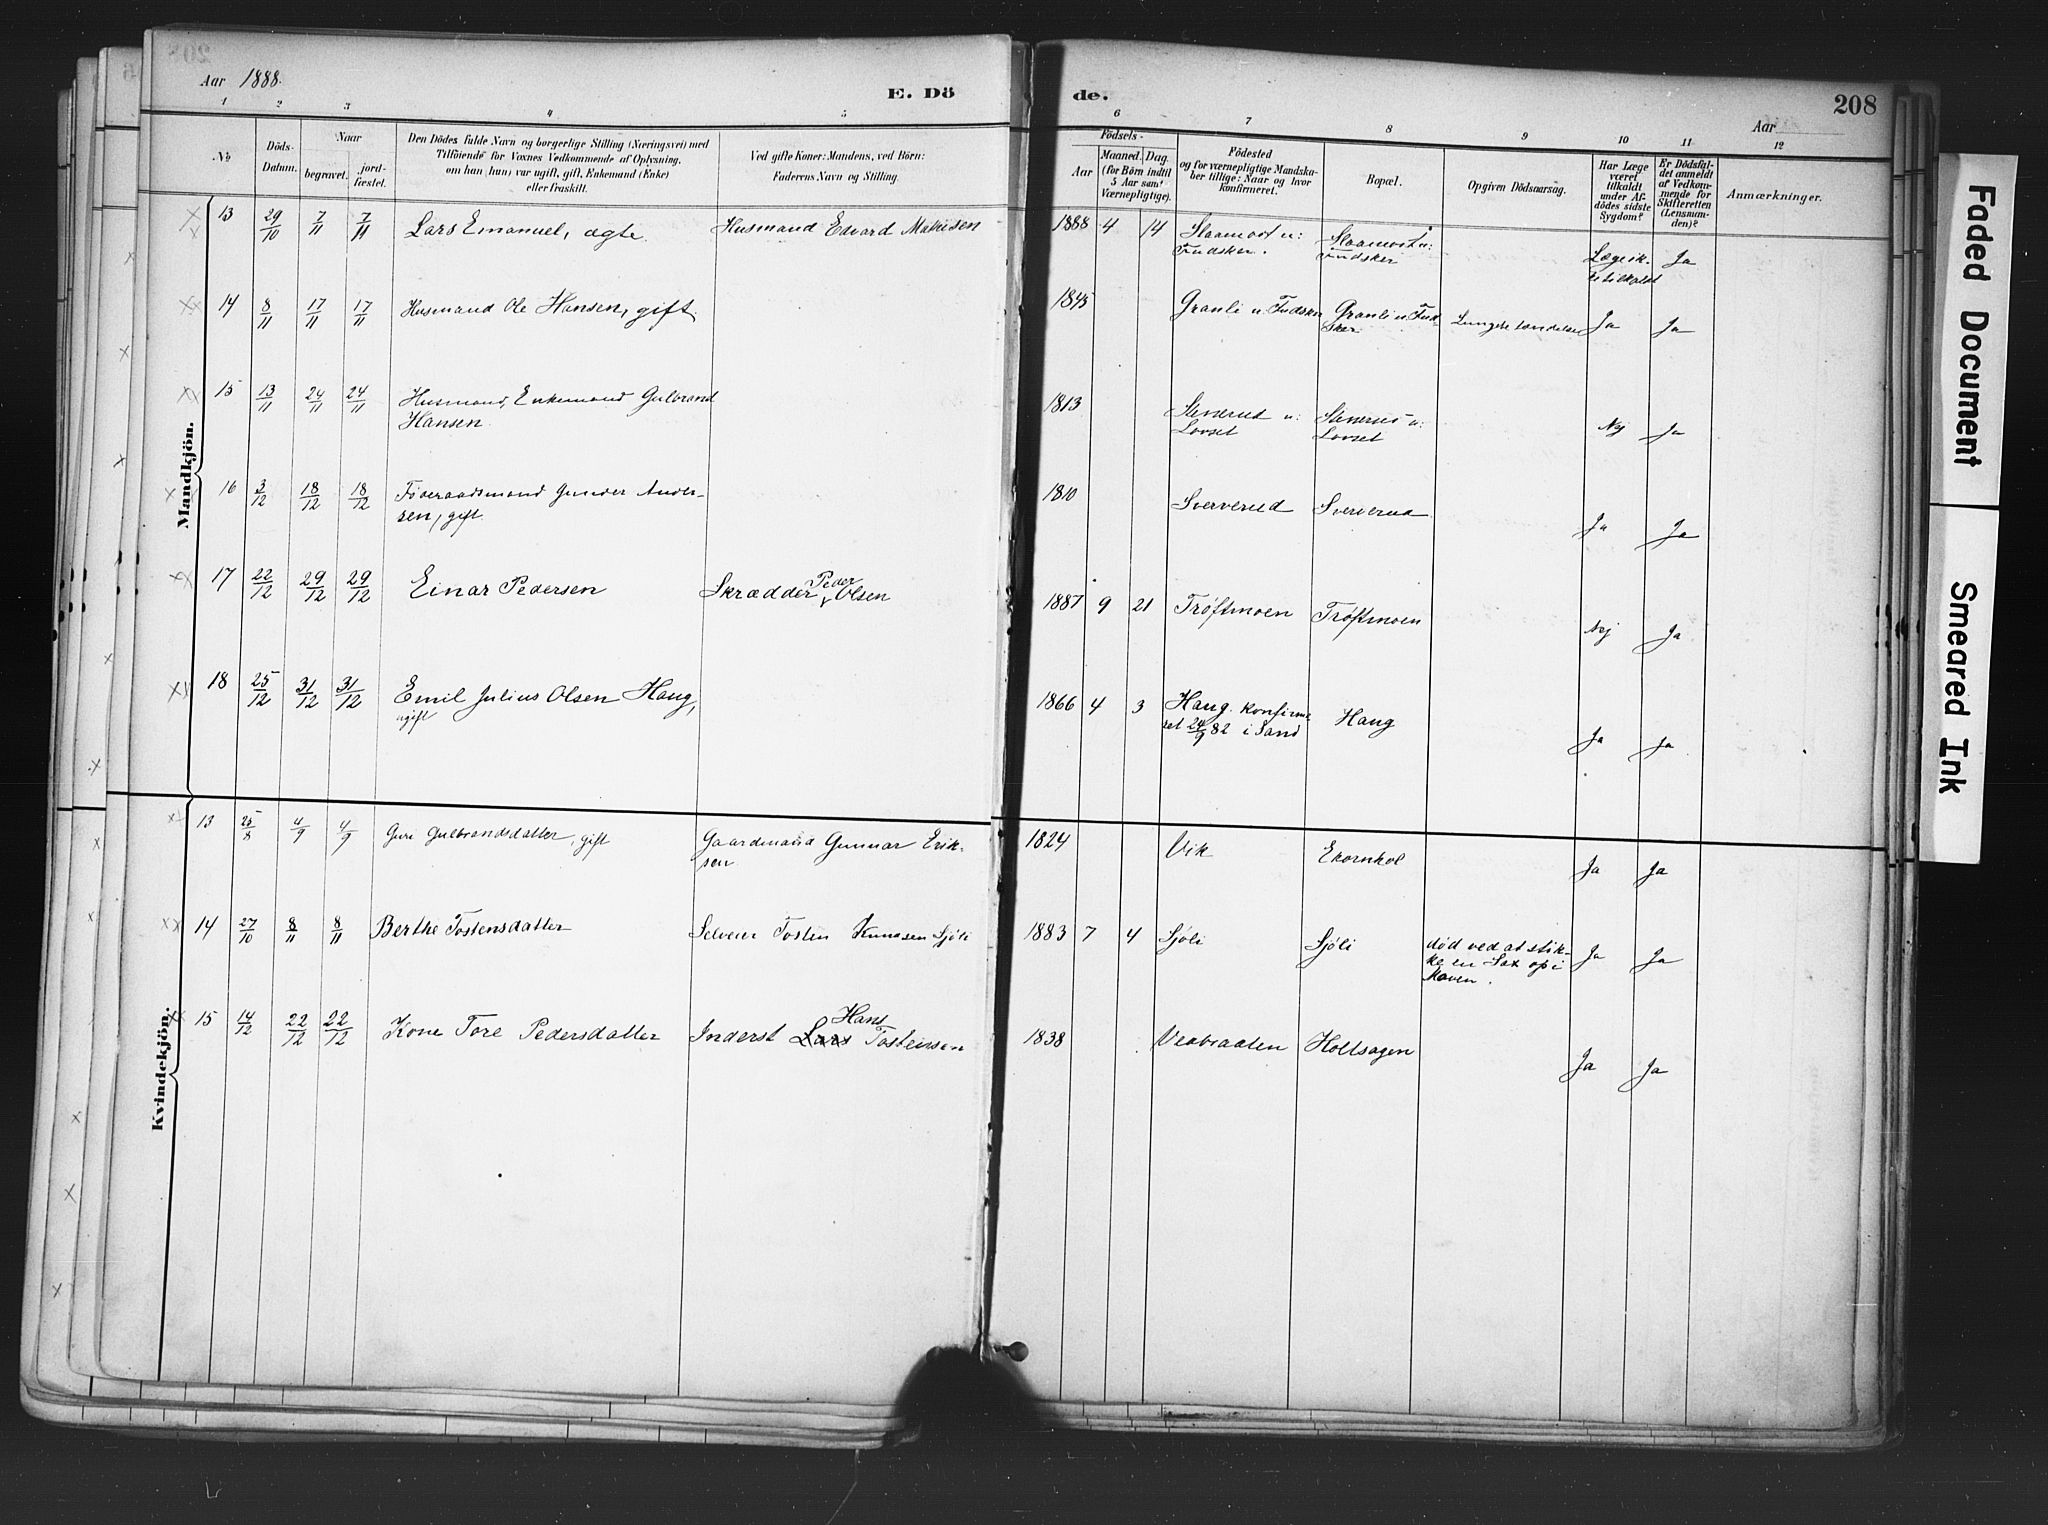 Aar 1888.
E. Dö
de.
208
Aar
1 2 3 4 5 6 7 8 9 10 11 12
No
Döds-Datum.
Naar
begravet. jord-fæstet.
Den Dödes fulde Navn og borgerlige Stilling (Næringsvei) med
Tilföiende for Voxnes Vedkommende af Oplysning,
om han (hun) var ugift, gift, Enkemand (Enke)
eller fraskilt.
Ved gifte Koner: Mandens, ved Börn:
Faderens Navn og Stilling.
Födsels-
Aar Maaned. Dag.
(for Börn indtil
5 Aar samt
Værnepligtige).
Födested
og for værnepligtige Mandska-
ber tillige: Naar og hvor
konfirmeret.
Bopæl.
Opgiven Dödsaarsag.
Har Læge
været
tilkaldt
under Af-
dödes sidste
Sygdom?
Er Dödsfal-
det anmeldt
af Vedkom-
mende for
Skifteretten
(Lensman-
den)?
Anmærkninger.
Mandkjön.
13 29/10 7/11 7/11 Lars Emanuel, ægte Husmand Edvard Mathisen 1888 4 14
Læge ik-
ke tilkaldt Ja
14 8/11 17/11 17/11 Husmand Ole Hansen, gift. 1845 Granli u. Fudsker Granli u. Fud-
sker Lungebetændelse Ja Ja
15 13/11 24/11 24/11 Husmand, Enkemand Gulbrand
Hansen. 1813 Stenerud u: Stenerud u:
Lovset Lovset Nej Ja
16 3/12 18/12 18/12 Føderaadsmand Gunder Ander-
sen, gift. 1810 Sververud Sververud Ja Ja
17 22/12 29/12 29/12 Einar Pedersen Skrædder Peder Olsen 1887 9 21 Trøftmoen Trøftmoen Nej Ja
18 25/12 31/12 31/12 Emil Julius Olsen Haug,
ugift 1866 4 3 Haug. Konfirme-
ret 24/9 82 i Sand Haug Ja Ja
Kvindekjön.
13 25/8 4/9 4/9 Guri Gulbrandsdatter, gift Gaardmand Gunnar Erik-
sen 1824 Vik Ekornhol Ja Ja
14 27/10 8/11 8/11 Berthe Tostensdatter Selveier Tosten Knudsen Sjöli 1883 7 4 Sjöli Sjöli død ved at stik-
ke en Sax op i
Maven. Ja Ja
15 14/12 22/12 22/12 Kone Tore Pedersdatter Inderst Lars Hans Tostensen 1838 Vedbraaten Holtsagen Ja Ja
Faded Document
Smeared Ink